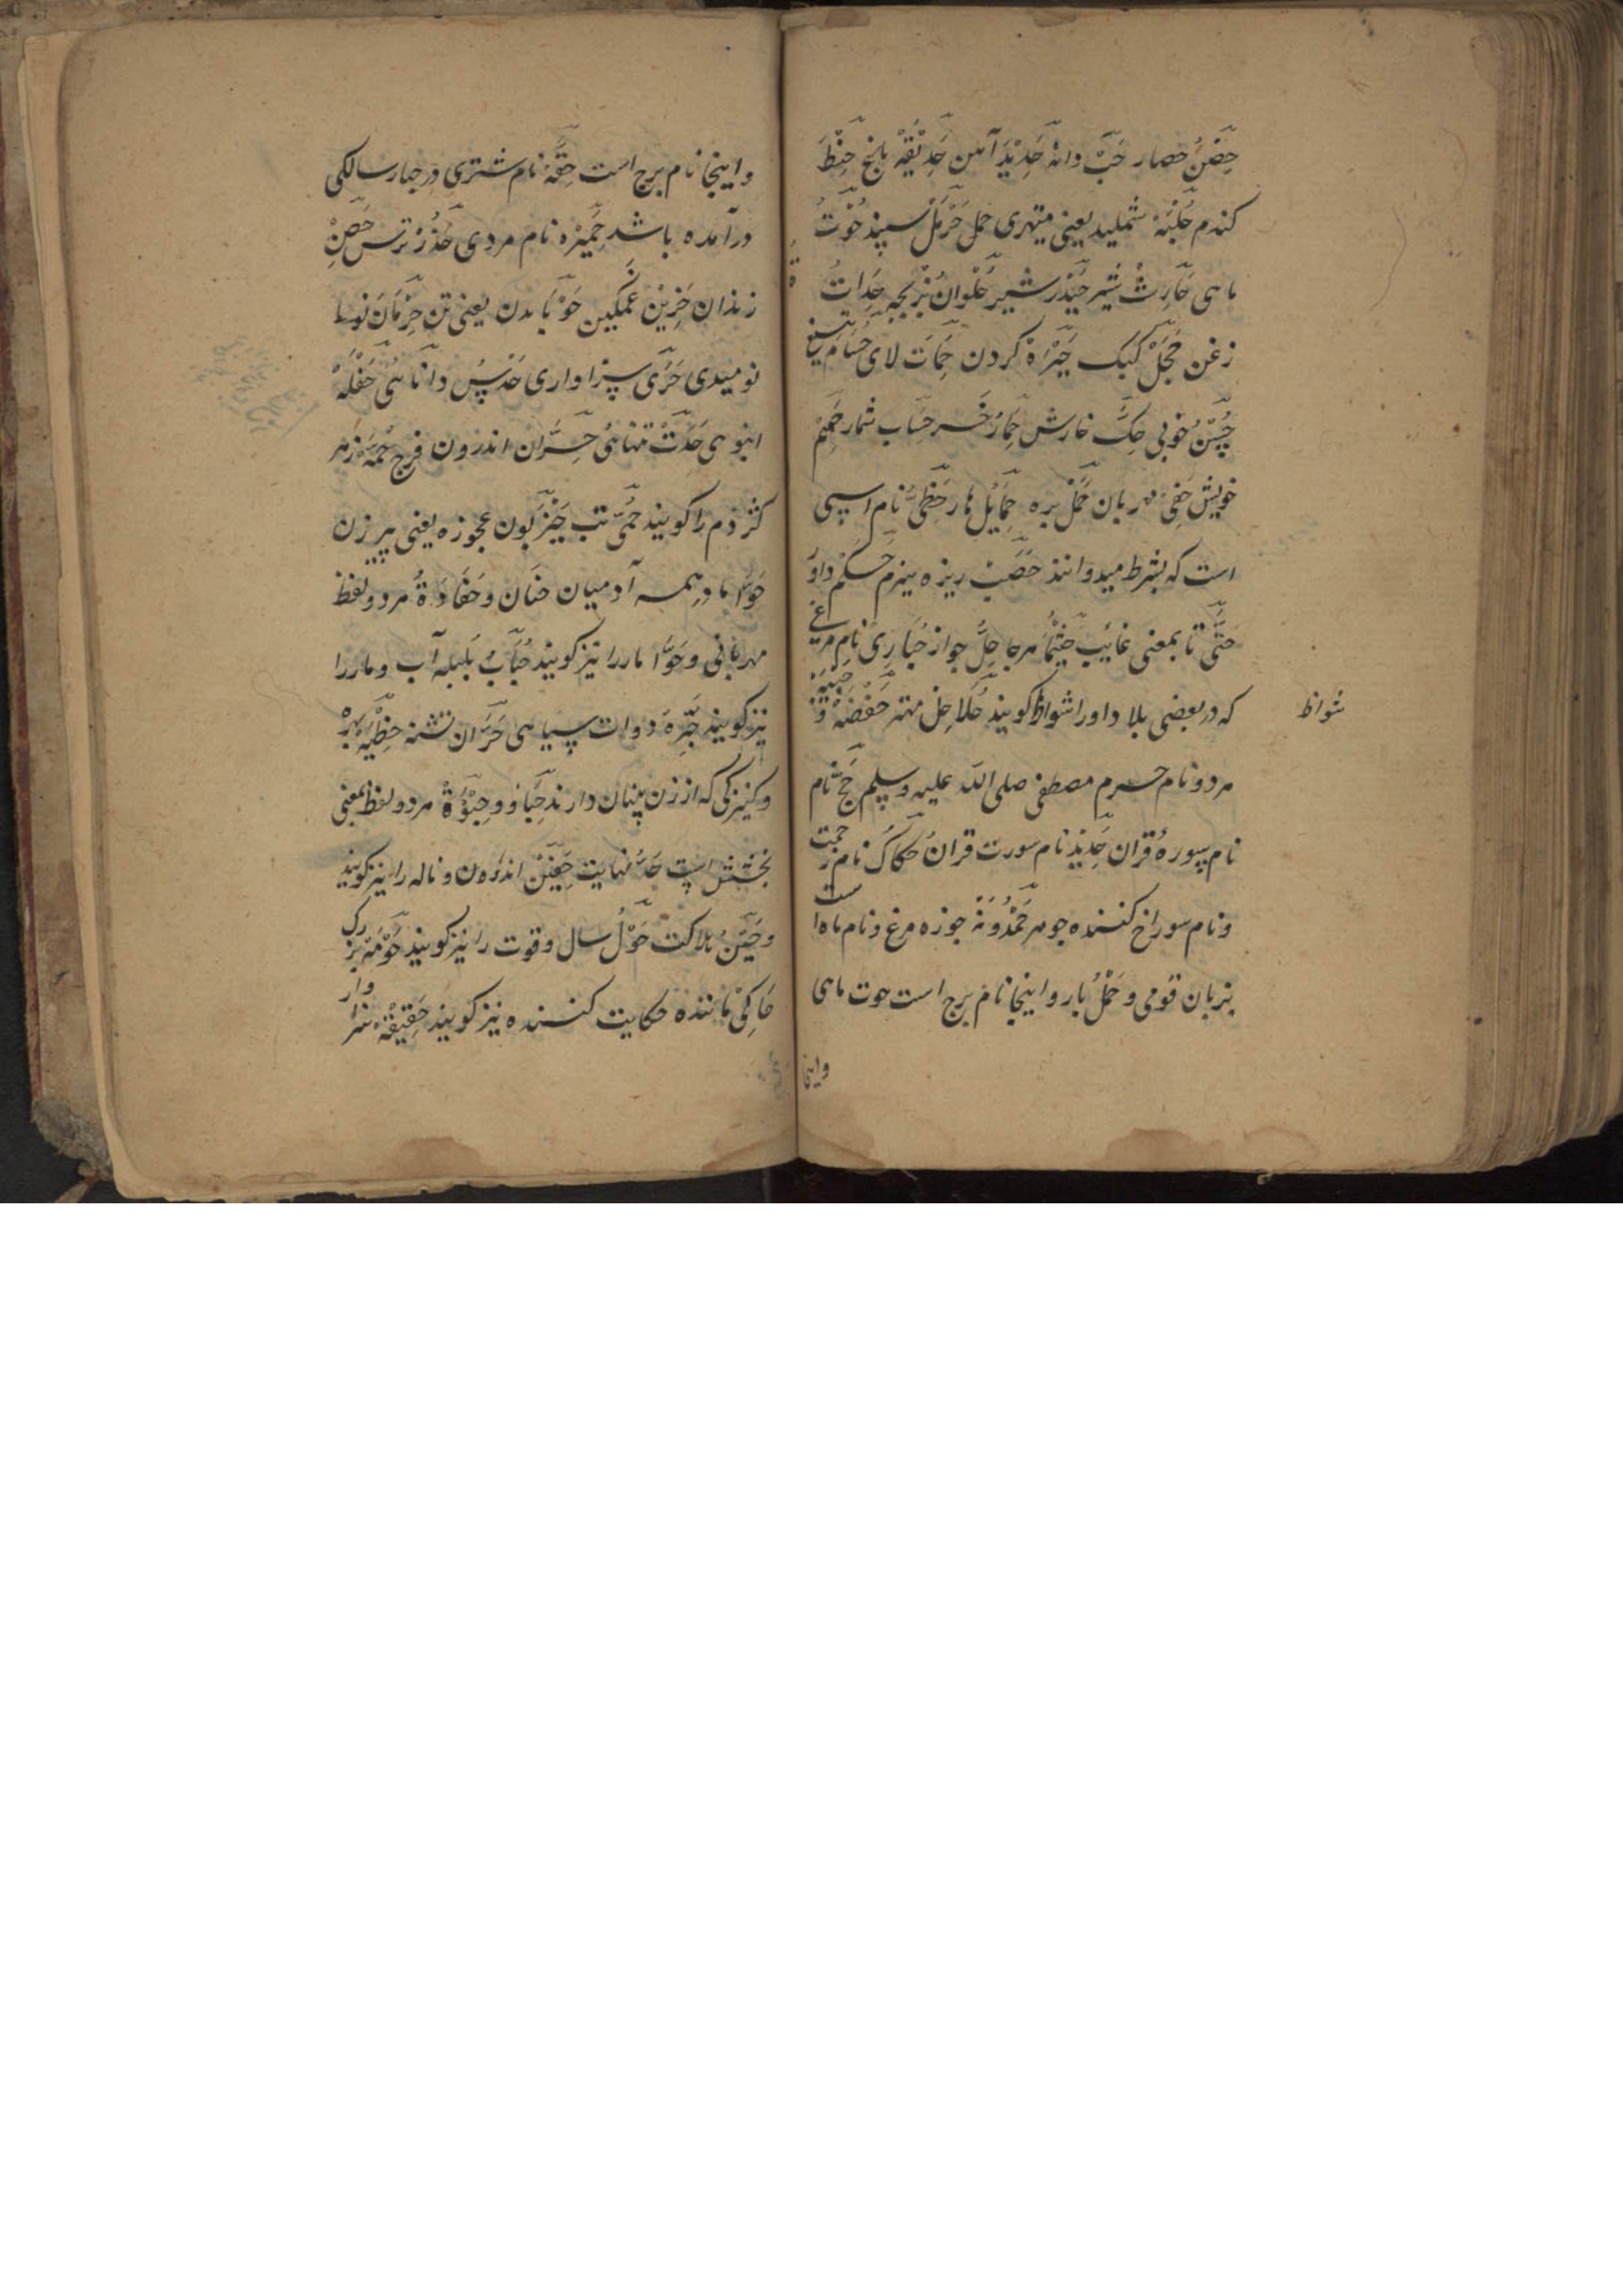 حِصْنُ حصار حَبّ دانه حَدِیْدَ آهن حَدِیْقَهْ باغ حِنْطَ
کندم حُلْبَهْ شملید یعنی میتهری حمل حَرْمَلْ سپند حُوْتُ
ماهی حَارِثْ شیر حَیْدَرْ شیر حُلْوانُ بزبچه حِدَاتْ
زغن حَجَلْ کبک کردن حَمَاتَ لای حُسَامْ تیغ
حُسْنُ خوبی حِکَّ خارش حِمَارْ خر حِسَاب شمار حَمِیْم
خویش حَفِیْ مهربان حَمَلْ بره حَمَایُل هار نام اسپی
است که بشرط میدوانند حَصَبْ ریزه هیزم حَکَمْ داوَ
حَتّٰی تا بمعنی غائیب حَیْثُمَا هرجا حِلُّ جواز حُبَارِیْ نام مرغی
که در بعضی بلاد او را شواظ کویند حُلَاحِلْ مهتر حَفْصَهْ وَ
شواظ
هر دو نام حرم مصطفی صلی الله علیه وسلم حَجّ نام
نام سوره قران حَدِیْد نام سورت قران حَکَّاکْ نام زحمت
و نام سوراخ کننده جوهر جوزه مرغ و نام ماه است
بزبان قومی و حَمْلُ بار و اینجا نام برج است حوت ماهی
واینجا
و اینجا نام برج است حِقَّهْ نام شتری در چهار سالکی
درآمده باشد حَمِیْزه نام مردی حَذَرْ ترس
زندان حَزِیْن غمکین حَوْبَا بدن یعنی تن حِرْمَانَ
نومیدی حَرِّی سزاواری حَدْسُ دانائی حَفْلَهْ
انبوهی تنهائی اندرون فرج حُمَّهْ زهر
کژدم را کویند حُمّٰی تب حَیْزَبُون عجوزه یعنی پیر زن
حَوّا مادر همه آدمیان حنَان و حَفَاوَةُ هر دو لفظ
مهربانی و حَوَّا مار را نیز کویند حُبَابُ بلبله آب و مار را
نیز کویند حِبْرَهَ دوات سیاهی حَرَّان تشنه حِظْیَهْ بهره
و کنیزکی که از زن پنهان دارند حِبَا و حِبْوَةْ هر دو لفظ بمعنی
بخشش است حَدُّ نهایت حَنِیْنْ اندوه و ناله را نیز کویند
و حَیْنُ هلاکت حَوْلُ سال و قوت را نیز کویند حَوْمَهْ بزرک
حَاکِیْ ماننده حکایت کننده نیز کویند حَقِیْقَهْ سزاوار